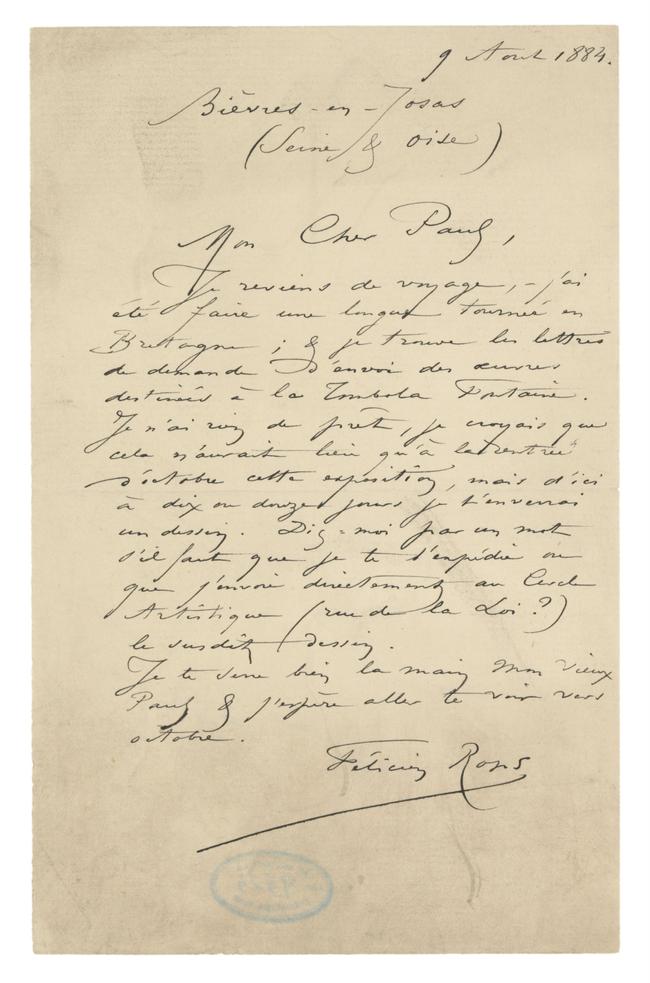 9 Aout 1884.
Bièvres-en-Josas
(Seine & Oise)
Mon Cher Paul,
Je reviens de voyage, - j'ai
été faire une longue tournée en
Bretagne ; & je trouve les lettres
de demande d'envoi des œuvres
destinées à la Tombola Fontaine.
Je n'ai rien de prêt, je croyais que
cela n'aurait lieu qu'à la rentrée
d'octobre cette exposition, mais d'ici
à dix ou douze jours je t'enverrai
un dessin. Dis-moi par un mot
s'il faut que je te l'expédie ou
que j'envoie directement au Cercle
Artistique (rue de la Loi ?)
le susdit dessin.
Je te serre bien la main mon vieux
Paul & j'espère aller te voir vers
octobre.
Félicien Rops